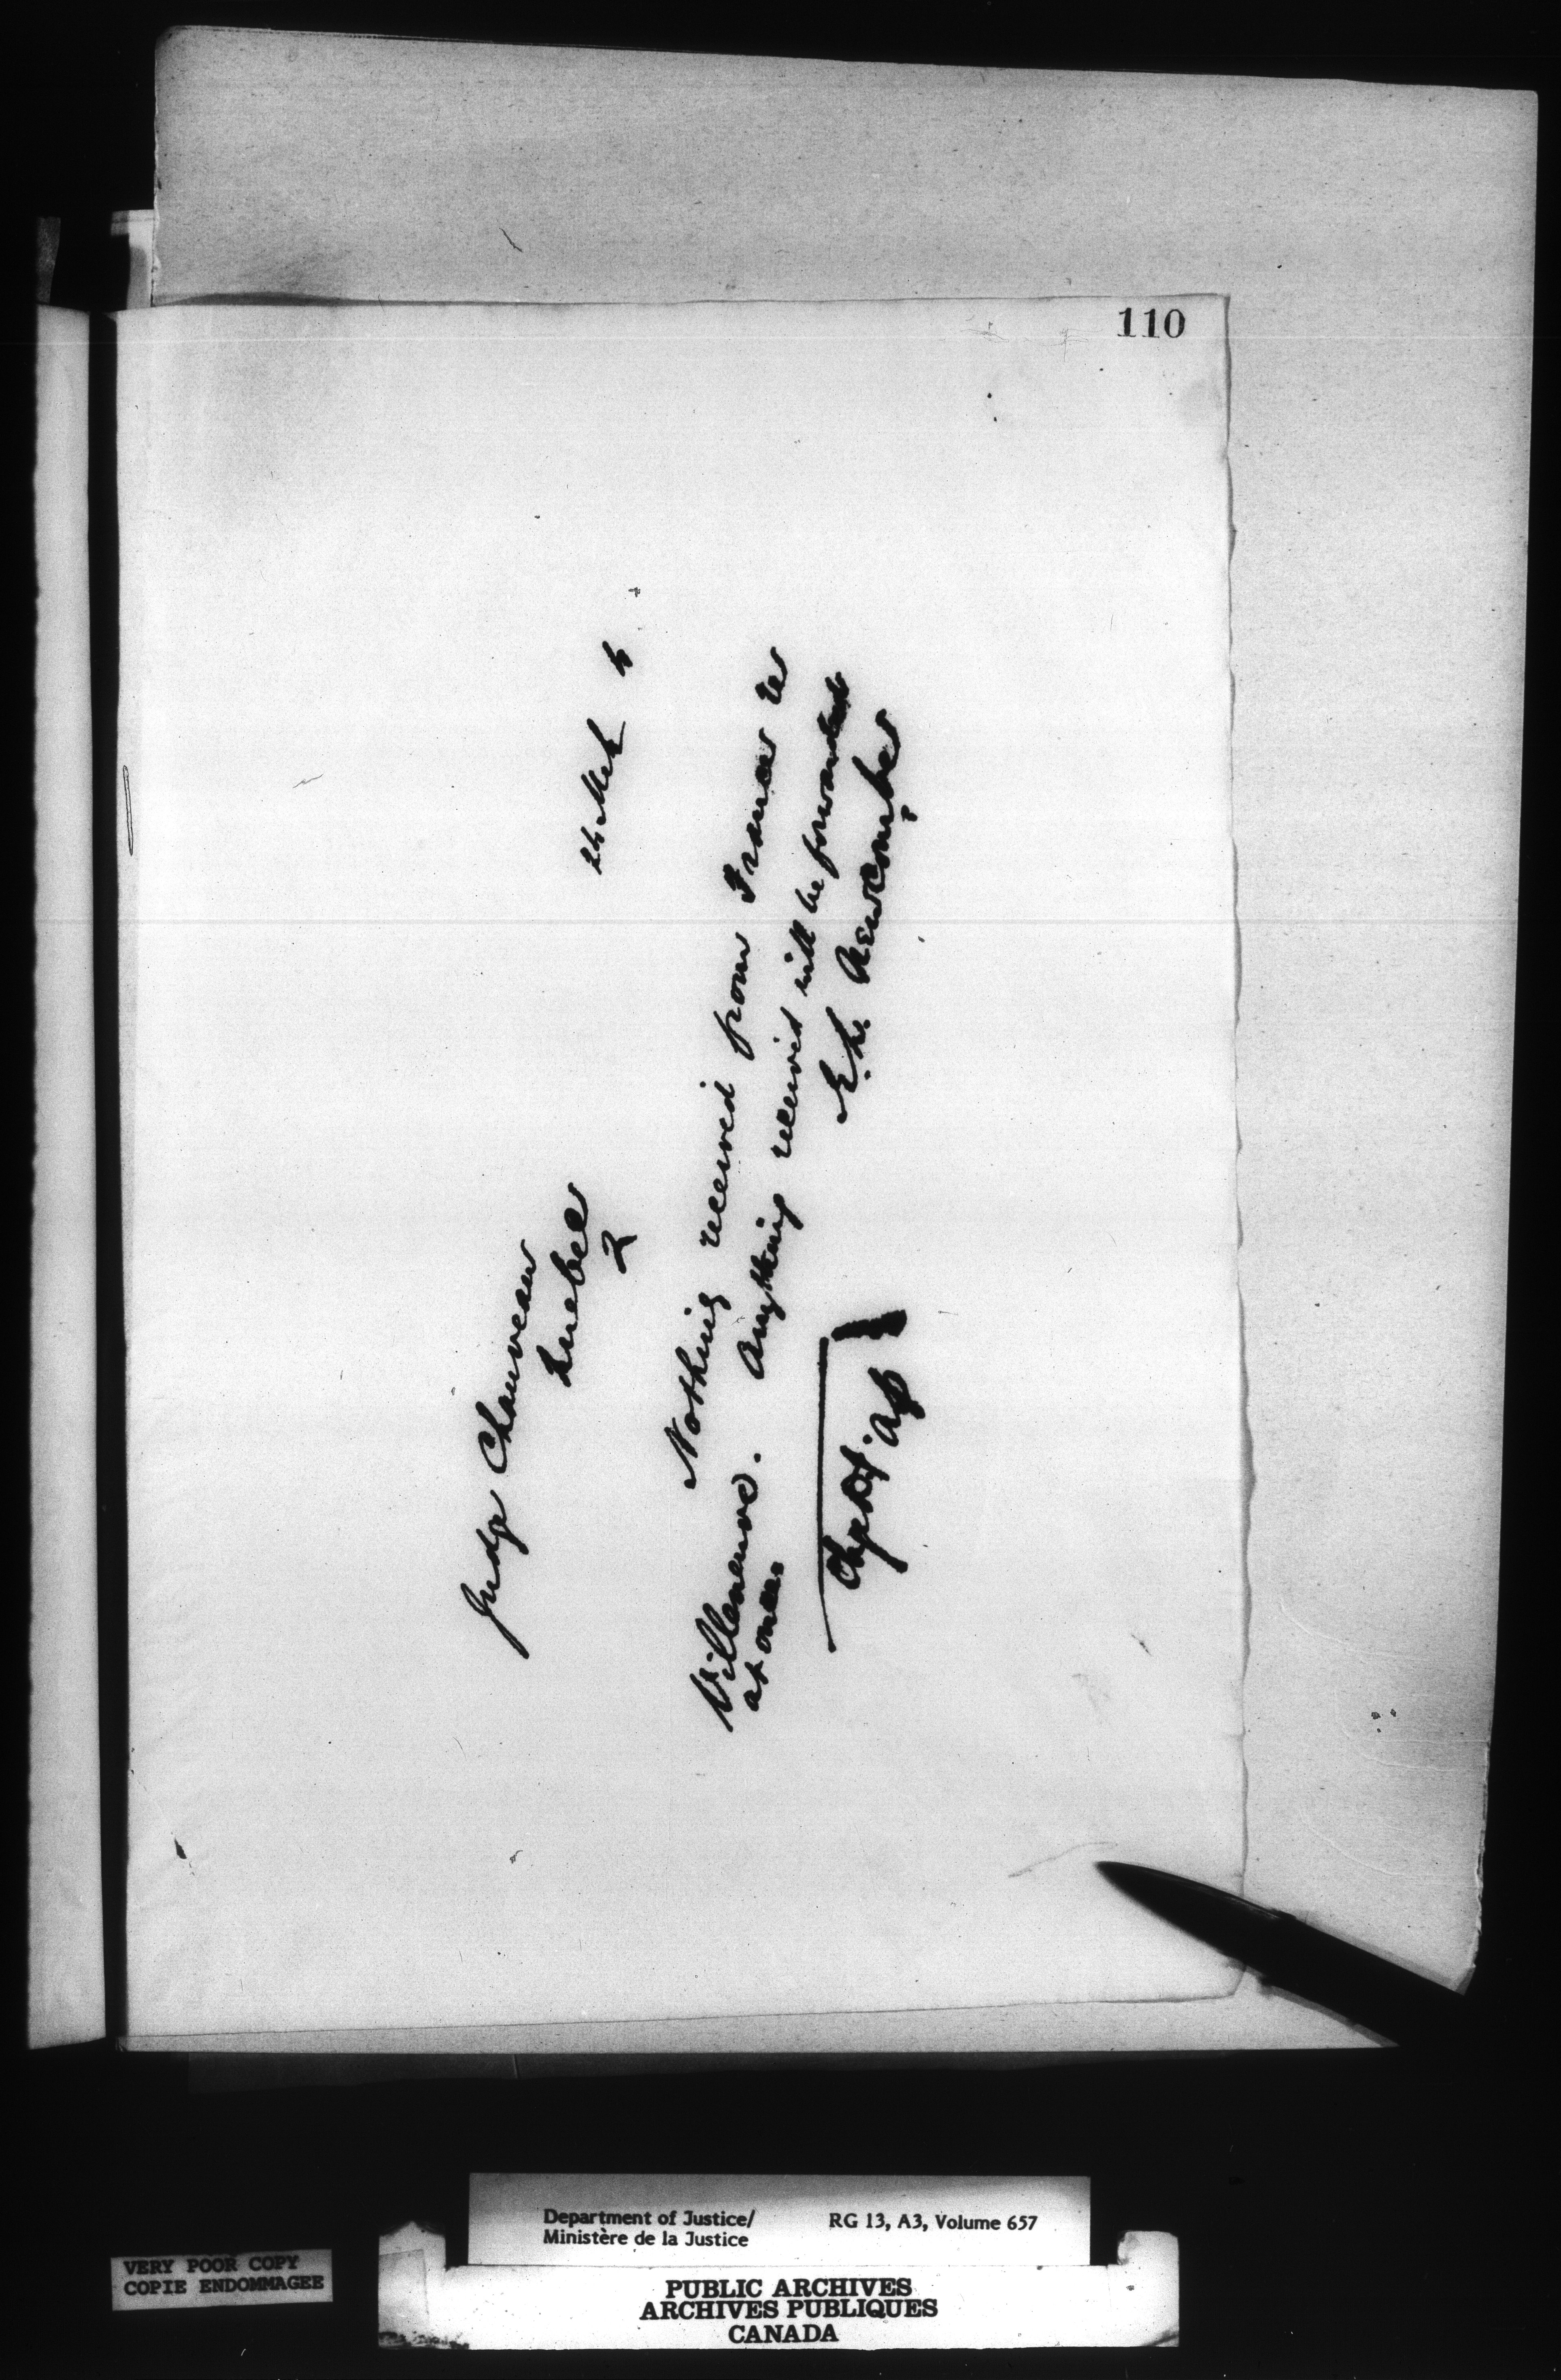 110
24 Mch 5
Judge Chauveau
Quebec
2
Nothing received from France re
Villeneuve. Anything received will be forwarded
at once.
E. L. Newcombe
Chge Dept. Jus
Department of Justice/ RG 13, A3, Volume 657
Ministère de la Justice
VERY POOR COPY
COPIE ENDOMMAGEE
PUBLIC ARCHIVES
ARCHIVES PUBLIQUES
CANADA